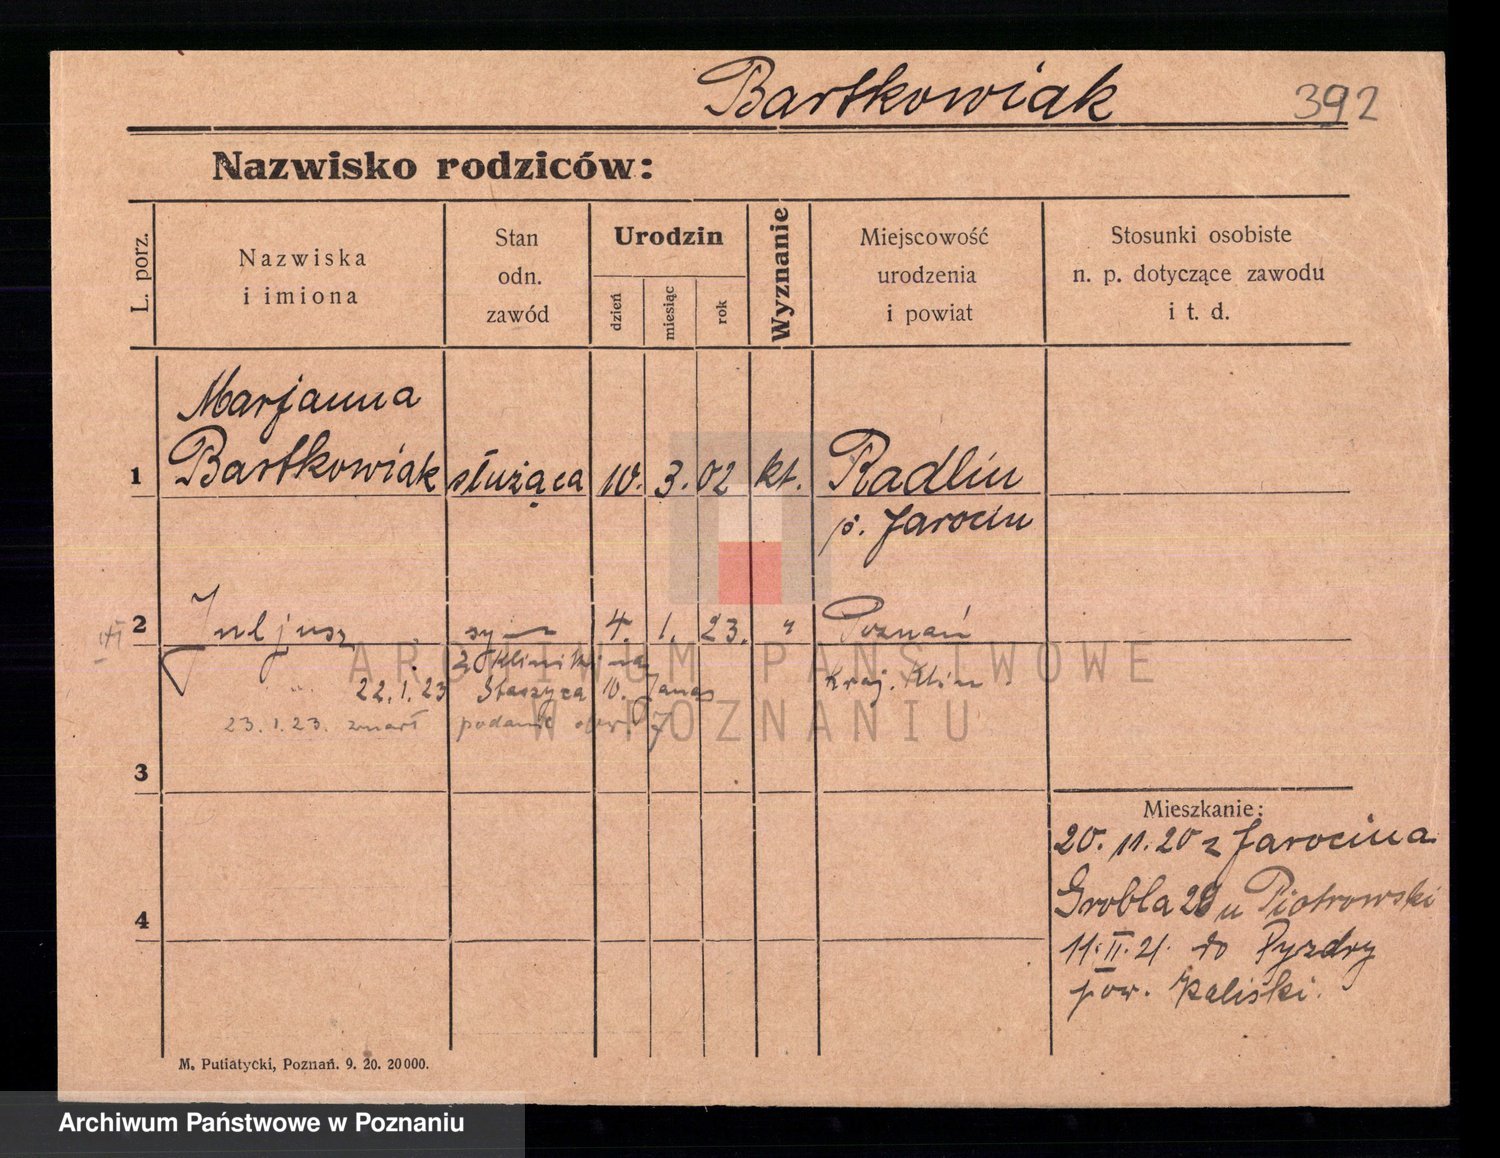 Bartkowiak 392
Nazwisko rodziców:
L. porz.
Nazwiska
i imiona
Stan
odn.
zawód
Urodzin
dzień
miesiąc
rok
Wyznanie
Miejscowość
urodzenia
i powiat
Stosunki osobiste
n. p. dotyczące zawodu
i t. d.
Marjanna
1 Bartkowiak służąca 10. 3. 02 kt. Radlin
p. Jarocin
2 Juljusz syn 4. 1. 23. " Poznań
z Kliniki na
22.1.23 Staszyca 10. Kraj. Klin
23.1.23. zmarł podanie
3
4
Mieszkanie:
20. 11. 20 z Jarocina
Grobla 28 u Piotrowski
11. II. 21. do Pyzdry
pow. Kaliski.
M. Putiatycki, Poznań. 9. 20. 20000.
ARCHIWUM PAŃSTWOWE
W POZNANIU
Archiwum Państwowe w Poznaniu